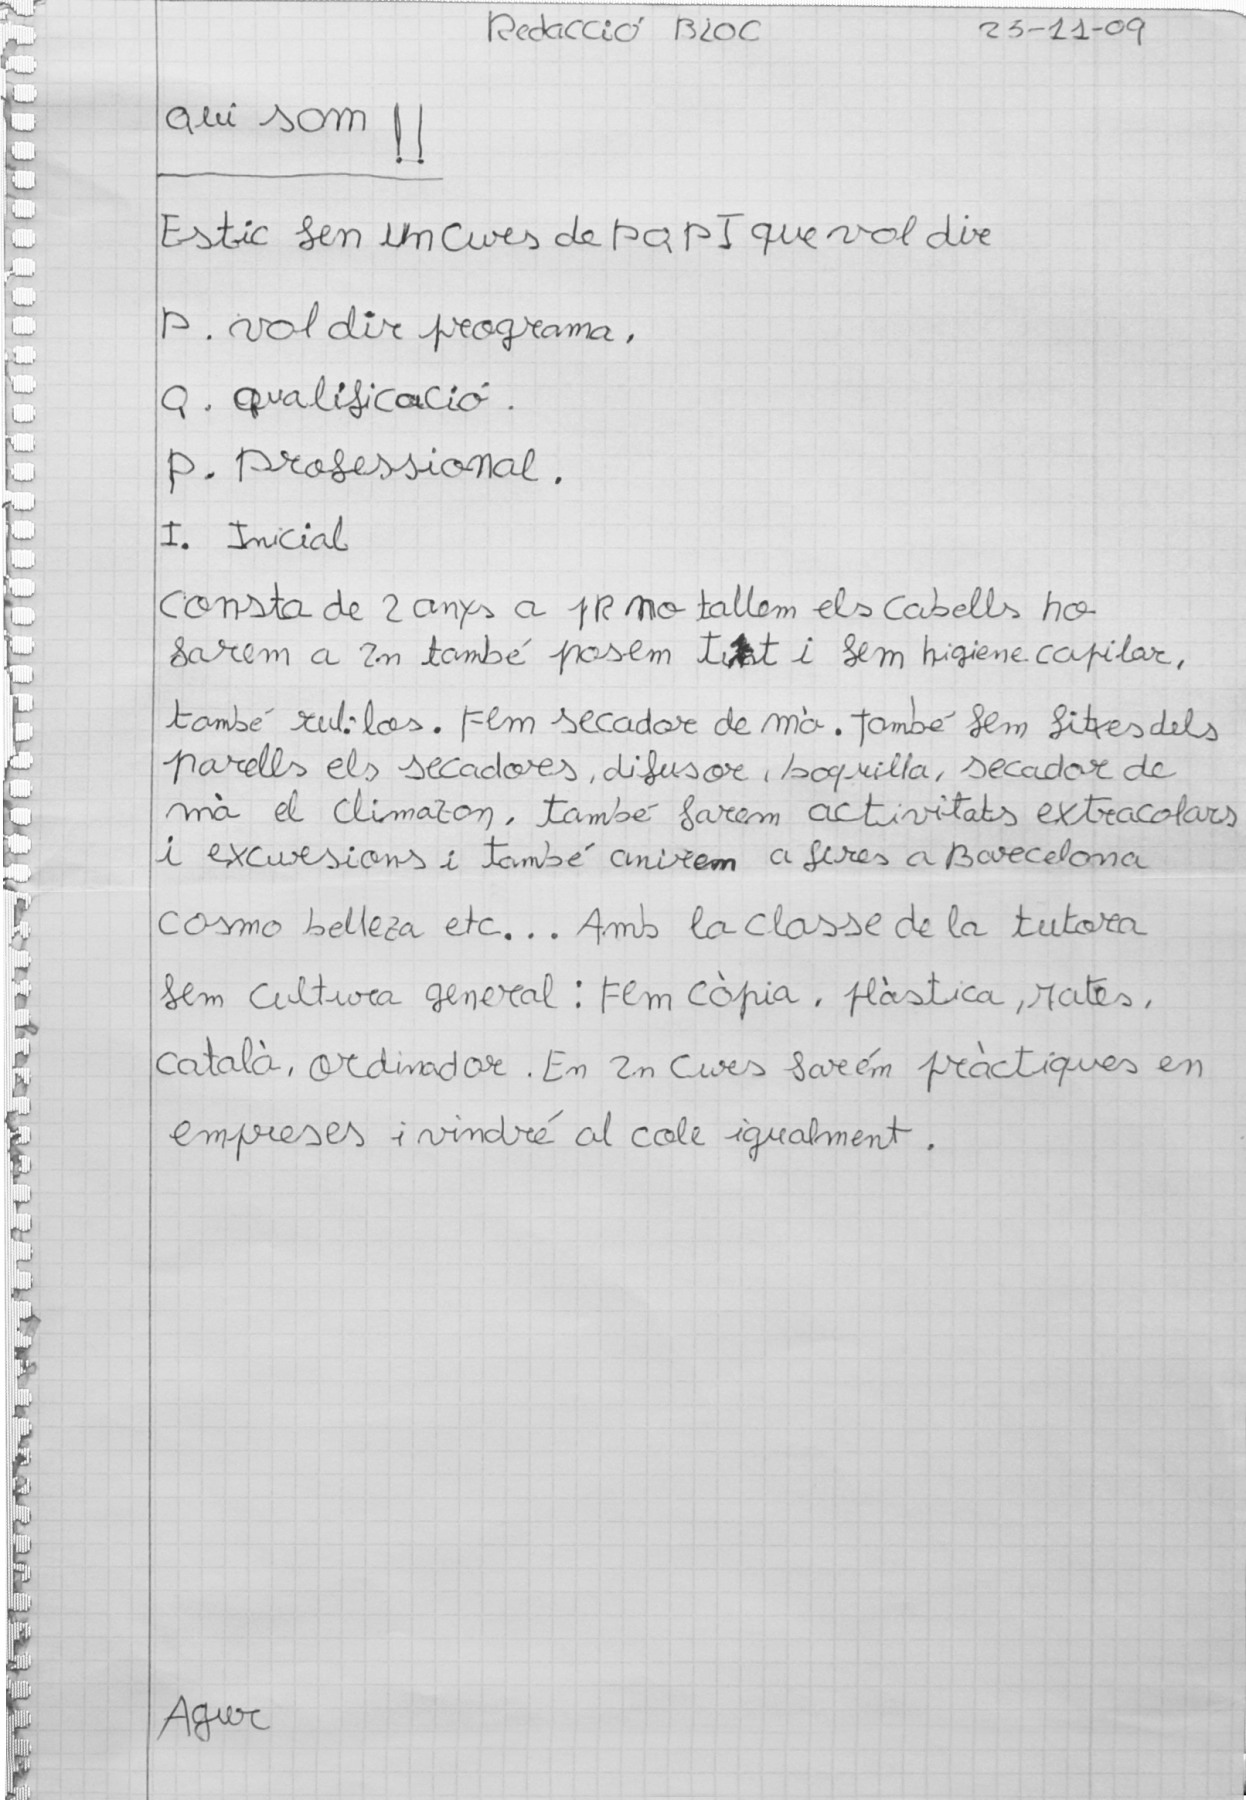 Redacció Bloc 25-11-09
Qui som !!
Estic fen un Curs de PQPI que vol dir
P. vol dir programa.
Q. qualificació.
P. Professional.
I. Inicial
Consta de 2 anys a 1R no tallem els cabells ho
farem a 2n també posem tint i fem higiene capilar,
també rul·los. Fem secador de mà. també fem fitxes dels
parells els secadores, difusor, boquilla, secador de
mà el climazon, també farem activitats extracolars
i excursions i també anirem a fires a Barcelona
cosmo belleza etc... Amb la classe de la tutora
fem cultura general: Fem còpia, plàstica, mates,
català, ordinador. En 2n Curs farém pràctiques en
empreses i vindré al cole igualment.
Agur